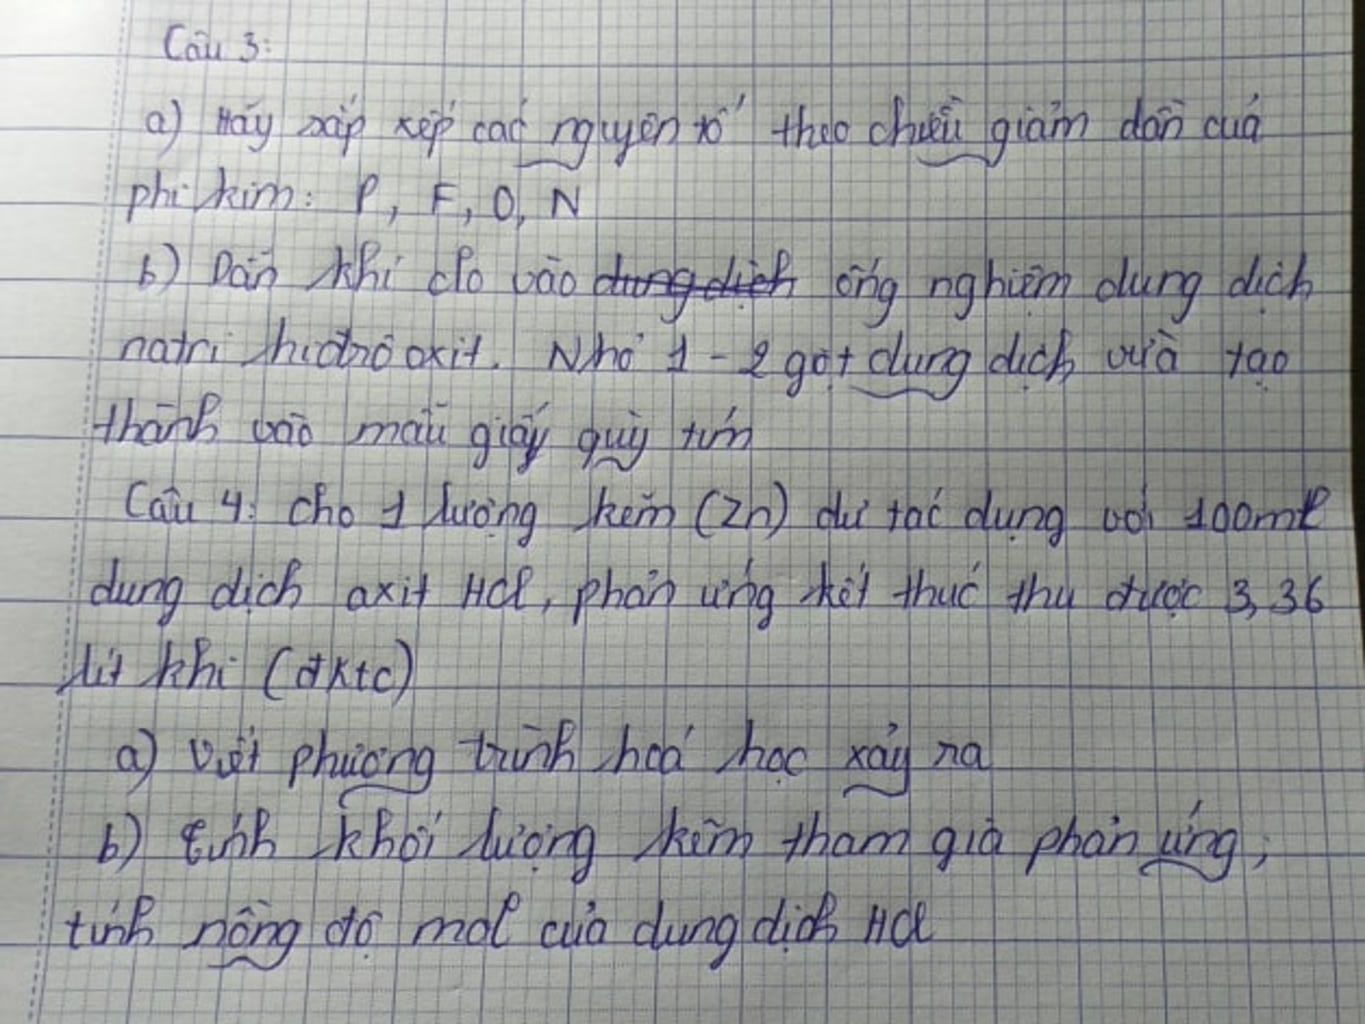 Câu 3:
a) Hãy sắp xếp các nguyên tố theo chiều giảm dần của
phi kim: P, F, O, N
b) Dẫn khí clo vào dung dịch ống nghiệm dung dịch
natri hiđrôoxit. Nhỏ 1 - 2 gọt dung dịch vừa tạo
thành vào mẫu giấy quỳ tím
Câu 4: Cho 1 lượng kẽm (Zn) dư tác dụng với 100ml
dung dịch axit HCl, phản ứng kết thúc thu được 3,36
lít khí (đktc)
a) Viết phương trình hoá học xảy ra
b) tính khối lượng kẽm tham gia phản ứng;
tính nồng độ mol của dung dịch HCl